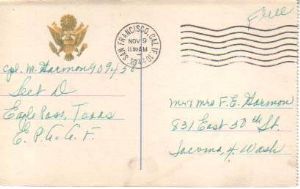 Free
SAN FRANCISCO, CALIF.
NOV 9
11 30 AM
Cpl. M. Harmon 409438
Sect D
Eagle Pass, Texas
E. P. A. A. F.
Mr & Mrs F. E. Harmon
831 East 50th St.
Tacoma 4, Wash